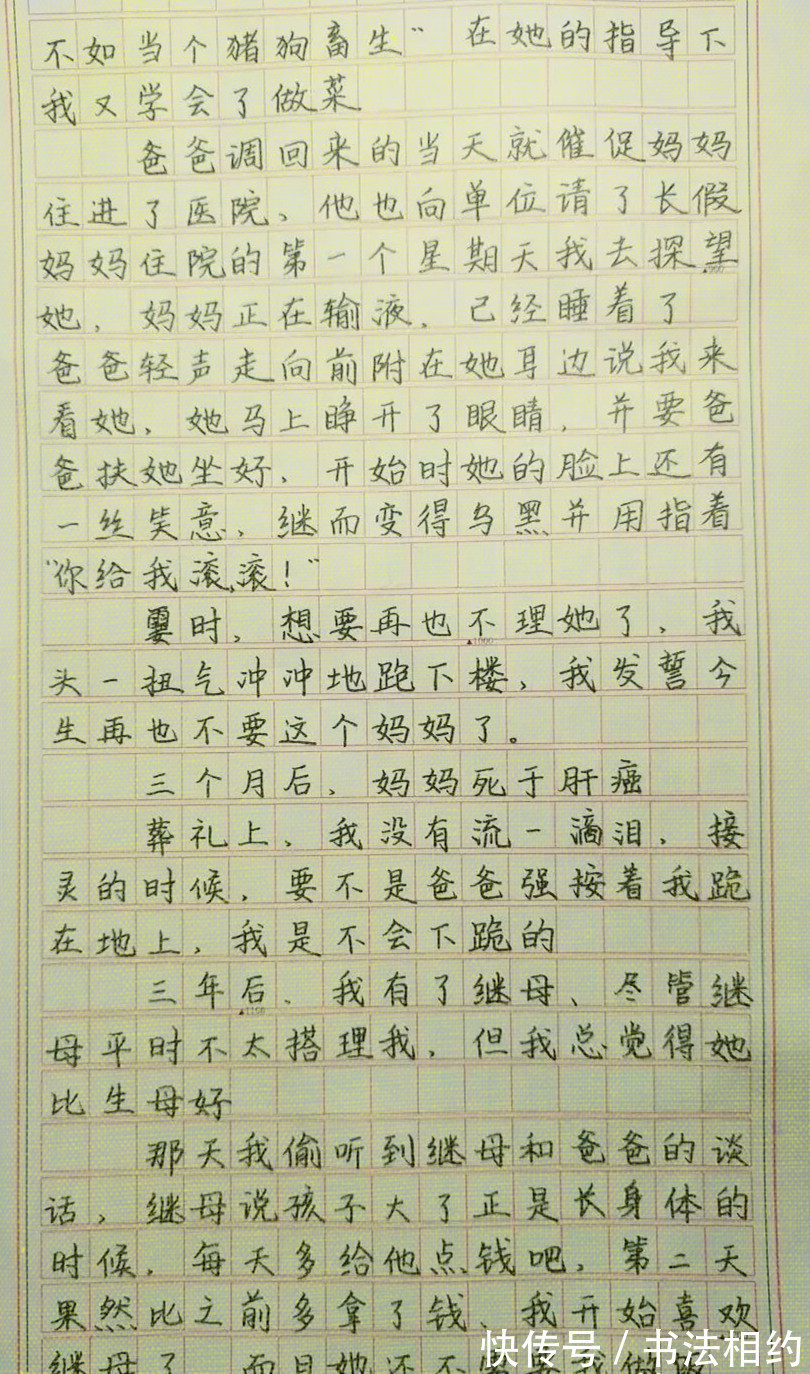 不如当个猪狗畜生” 在她的指导下
我又学会了做菜
爸爸调回来的当天就催促妈妈
住进了医院、他也向单位请了长假
妈妈住院的第一个星期天我去探望
她，妈妈正在输液，已经睡着了
爸爸轻声走向前附在她耳边说我来
看她，她马上睁开了眼睛，并要爸
爸扶她坐好，开始时她的脸上还有
一丝笑意，继而变得乌黑并用指着
“你给我滚，滚！”
霎时，想要再也不理她了，我
▲1000
头一扭气冲冲地跑下楼，我发誓今
生再也不要这个妈妈了。
三个月后，妈妈死于肝癌
葬礼上，我没有流一滴泪，接
灵的时候，要不是爸爸强按着我跪
在地上，我是不会下跪的
三年后、我有了继母、尽管继
▲1100
母平时不太搭理我，但我总觉得她
比生母好
那天我偷听到继母和爸爸的谈
话，继母说孩子大了正是长身体的
时候，每天多给他点钱吧，第二天
果然比之前多拿了钱、我开始喜欢
继母了 而且她还不需要我做饭
快传号 / 书法相约